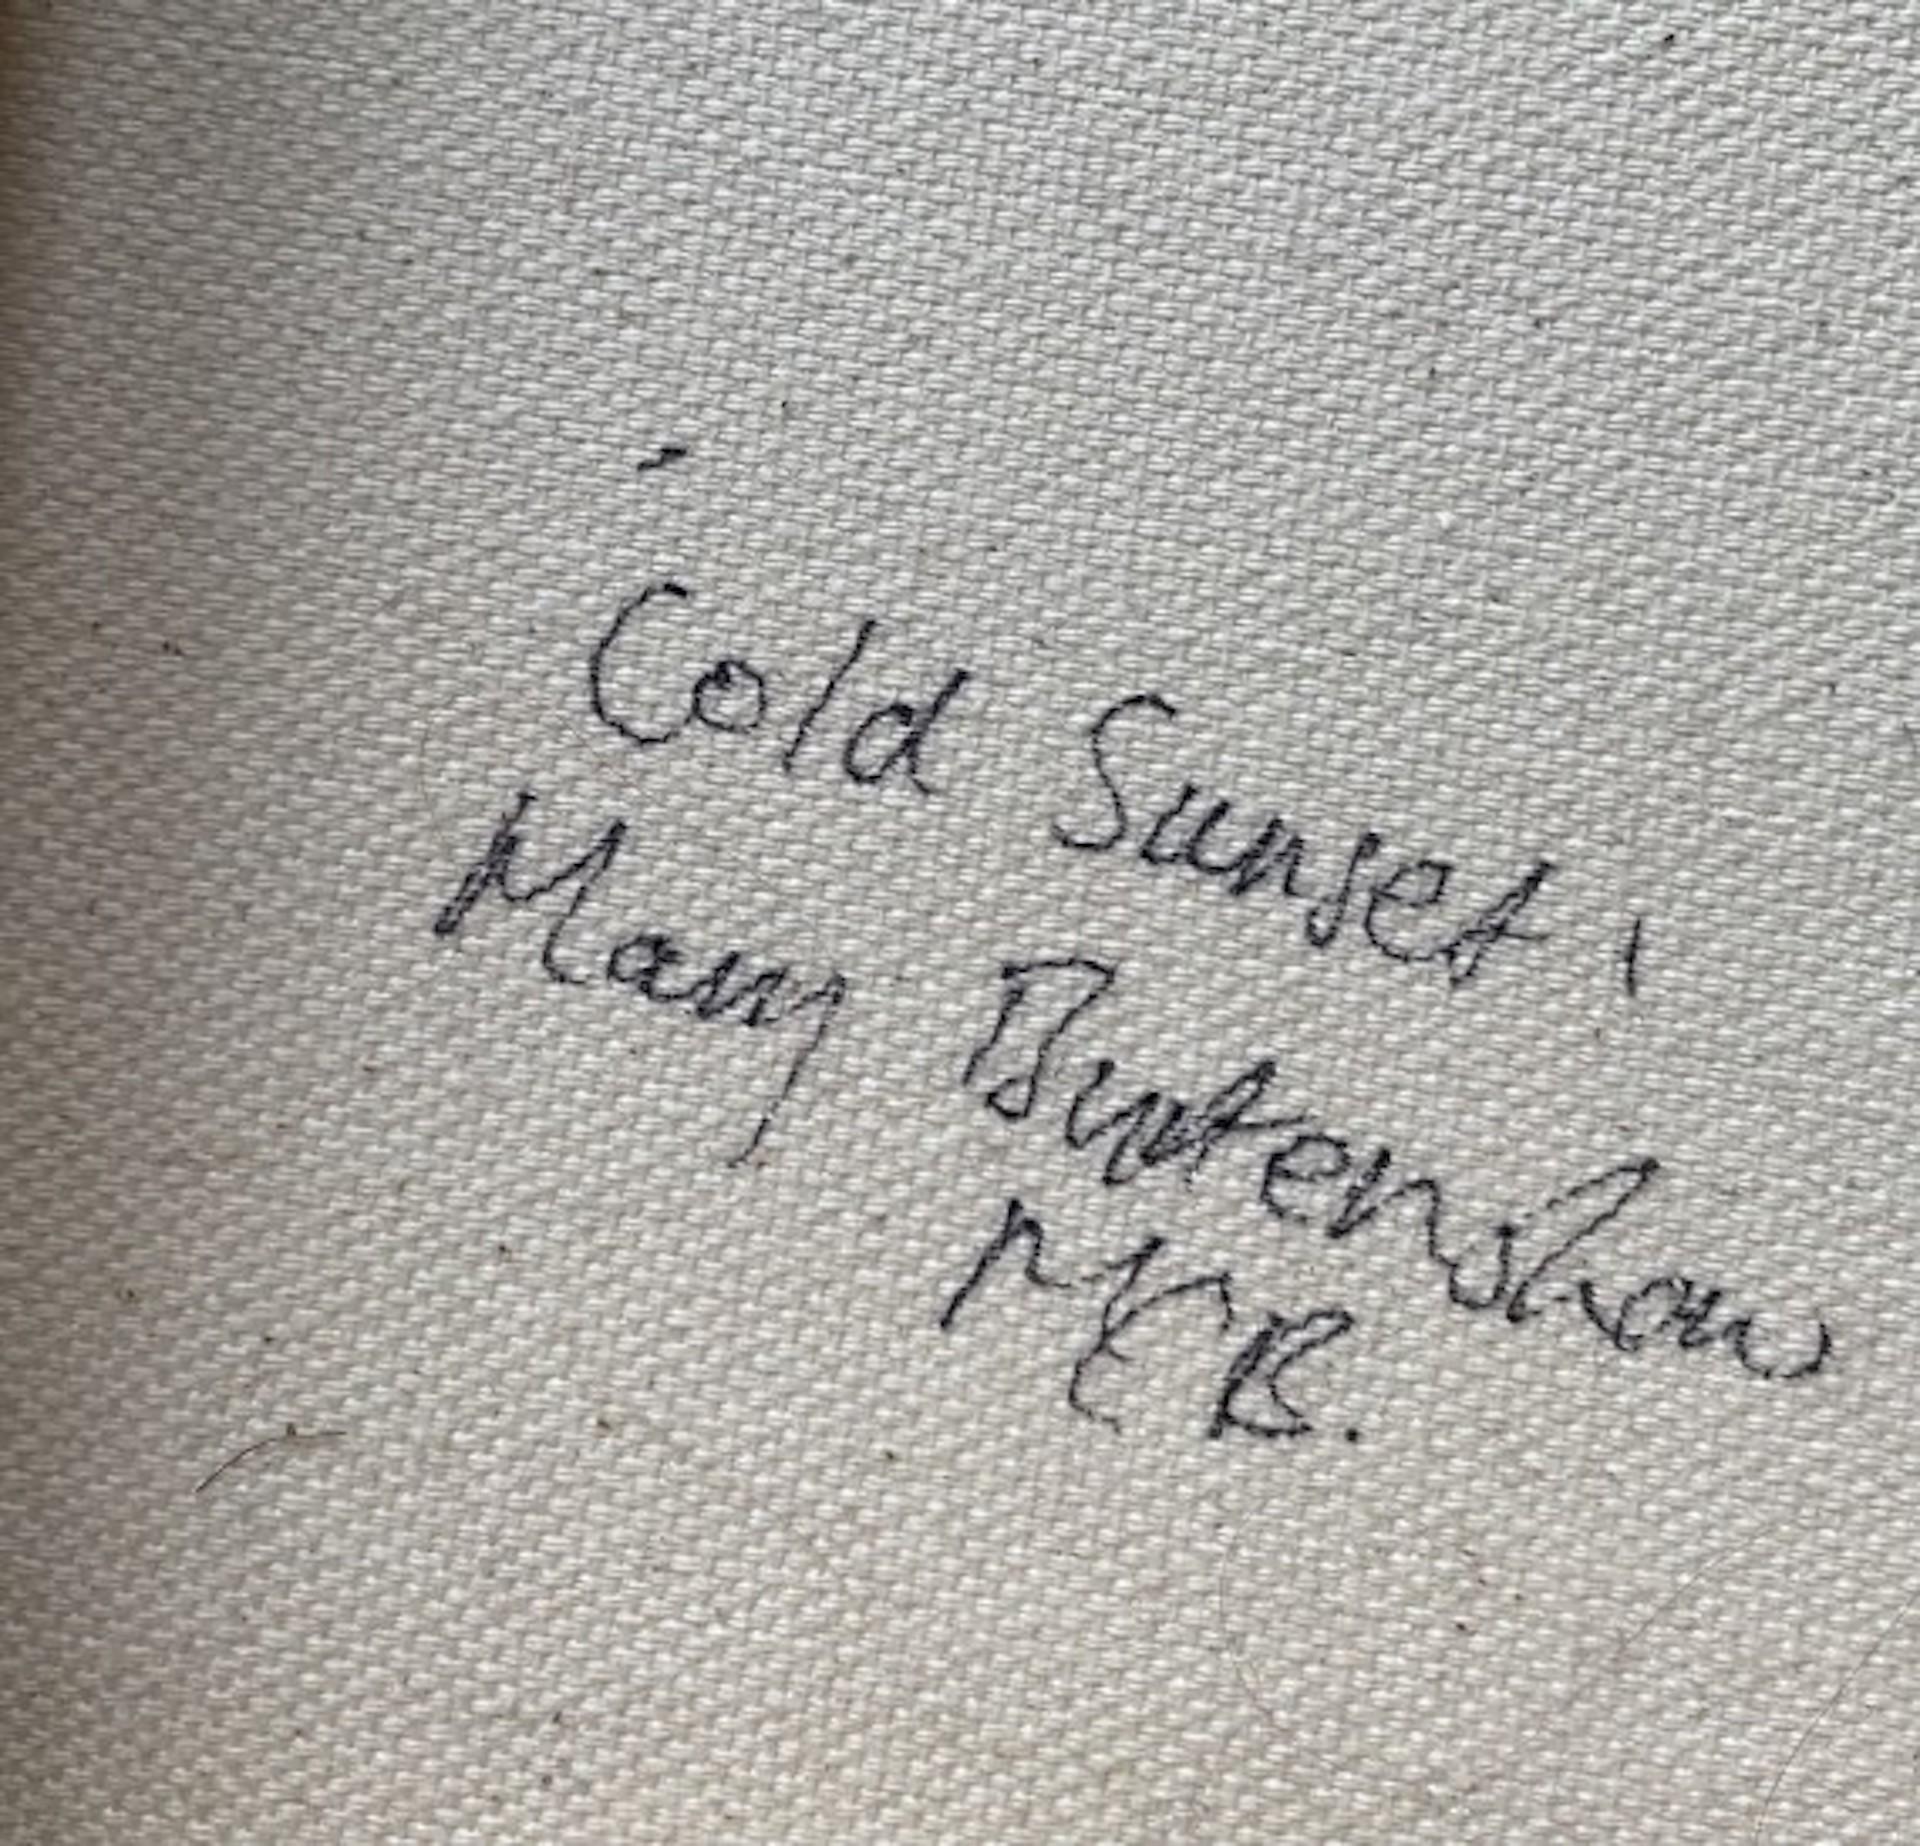 Cold Sunset.
Mary Burtenshaw
MEB.